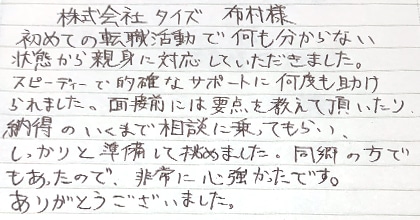 株式会社タイズ 布村様
初めての転職活動で何も分からない
状態から親身に対応していただきました。
スピーディーで的確なサポートに何度も助け
られました。面接前には要点を教えて頂いたり
納得のいくまで相談に乗ってもらい、
しっかりと準備して挑めました。同郷の方で
もあったので、非常に心強かったです。
ありがとうございました。